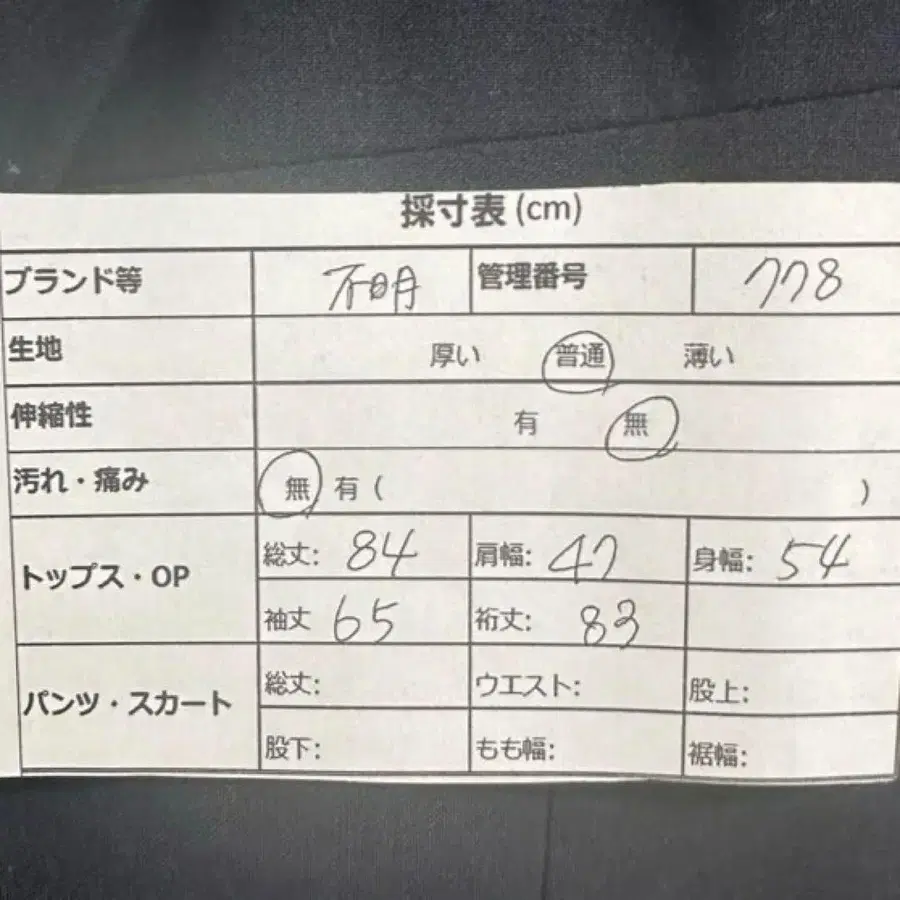 採寸表 (cm)
ブランド等 不明 管理番号 778
生地 厚い 普通 薄い
伸縮性 有 無
汚れ・痛み 無 有 ( )
トップス・OP 総丈: 84 肩幅: 47 身幅: 54
袖丈 65 裄丈: 83
パンツ・スカート 総丈: ウエスト: 股上:
股下: もも幅: 裾幅: